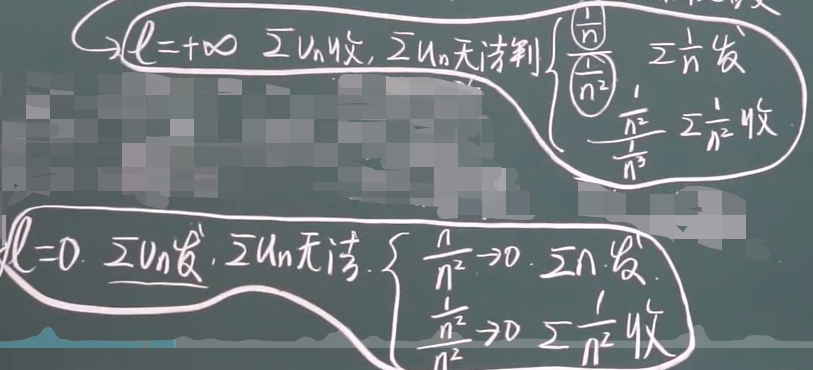 l=+∞ ΣVn收, ΣUn无法判 { (1/n)/(1/n²) Σ1/n 发
(1/n²)/(1/n³) Σ1/n² 收
l=0. ΣVn发, ΣUn无法. { n/n² →0. Σn 发.
(1/n²)/n² →0 Σ1/n² 收